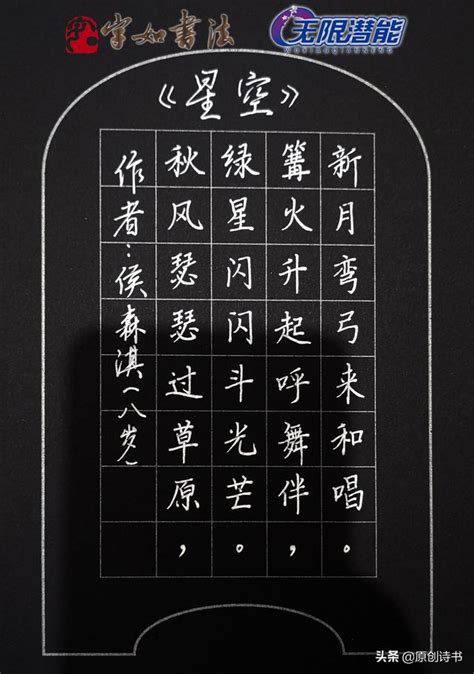 字如書法
无限潜能
WUXIANQIANNENG
《星空》
作者：侯森淇（八岁）
秋风瑟瑟过草原，
绿星闪闪斗光芒。
篝火升起呼舞伴，
新月弯弓来和唱。
头条 @原创诗书